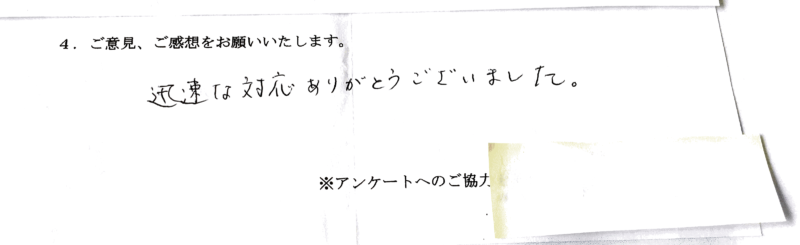 4．ご意見、ご感想をお願いいたします。
迅速な対応ありがとうございました。
※アンケートへのご協力